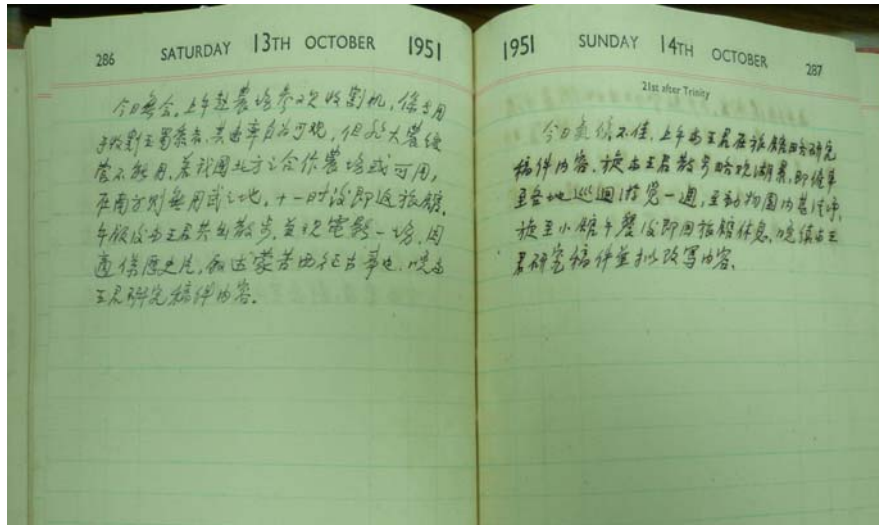 286 SATURDAY 13TH OCTOBER 1951
今日無会，上午赴農場参观收割机，係專用
于收割玉蜀黍者，其効率自為可观，但非大農經
營不能用，若我國北方之合作農場或可用，
在南方則無用武之地，十一时後即返旅館，
午飯後与王君共出散步，並观電影一場，因
適係歷史片，叙述蒙古西征古事也，晚与
王君研究稿件内容。
1951 SUNDAY 14TH OCTOBER 287
21st after Trinity
今日氣候不佳，上午与王君在旅館略研究
稿件内容，旋与王君散步略观湖景，即乘車
至各地巡迴游覽一週，至動物園内
旋至小館午餐後即回旅館休息，晚續与王
君研究稿件並擬改写内容。